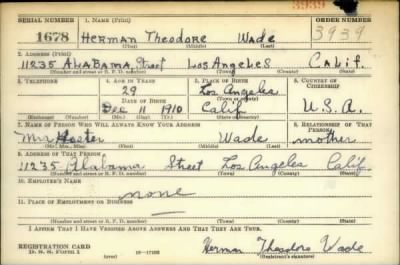 3939
SERIAL NUMBER 1. NAME (Print) ORDER NUMBER
1678 HERMAN THEODORE WADE 3939
(First) (Middle) (Last)
2. ADDRESS (Print)
11235 ALABAMA Street Los Angeles Calif.
(Number and street or R. F. D. number) (Town) (County) (State)
3. TELEPHONE 4. AGE IN YEARS 5. PLACE OF BIRTH 6. COUNTRY OF CITIZENSHIP
29 Los Angeles
DATE OF BIRTH (Town or county)
Dec 11 1910 Calif U.S.A.
(Exchange) (Number) (Mo.) (Day) (Yr.) (State or country)
7. NAME OF PERSON WHO WILL ALWAYS KNOW YOUR ADDRESS 8. RELATIONSHIP OF THAT PERSON
Mrs Hester Wade mother
(Mr., Mrs., Miss) (First) (Middle) (Last)
9. ADDRESS OF THAT PERSON
11235 Alabama Street Los Angeles Calif
(Number and street or R. F. D. number) (Town) (County) (State)
10. EMPLOYER'S NAME
none
11. PLACE OF EMPLOYMENT OR BUSINESS
(Number and street or R. F. D. number) (Town) (County) (State)
I AFFIRM THAT I HAVE VERIFIED ABOVE ANSWERS AND THAT THEY ARE TRUE.
REGISTRATION CARD
D. S. S. Form 1 Herman Theodore Wade
(Registrant's signature)